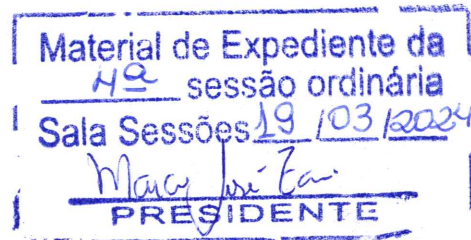 Material de Expediente da
4ª sessão ordinária
Sala Sessões 19 / 03 / 2024
José
PRESIDENTE